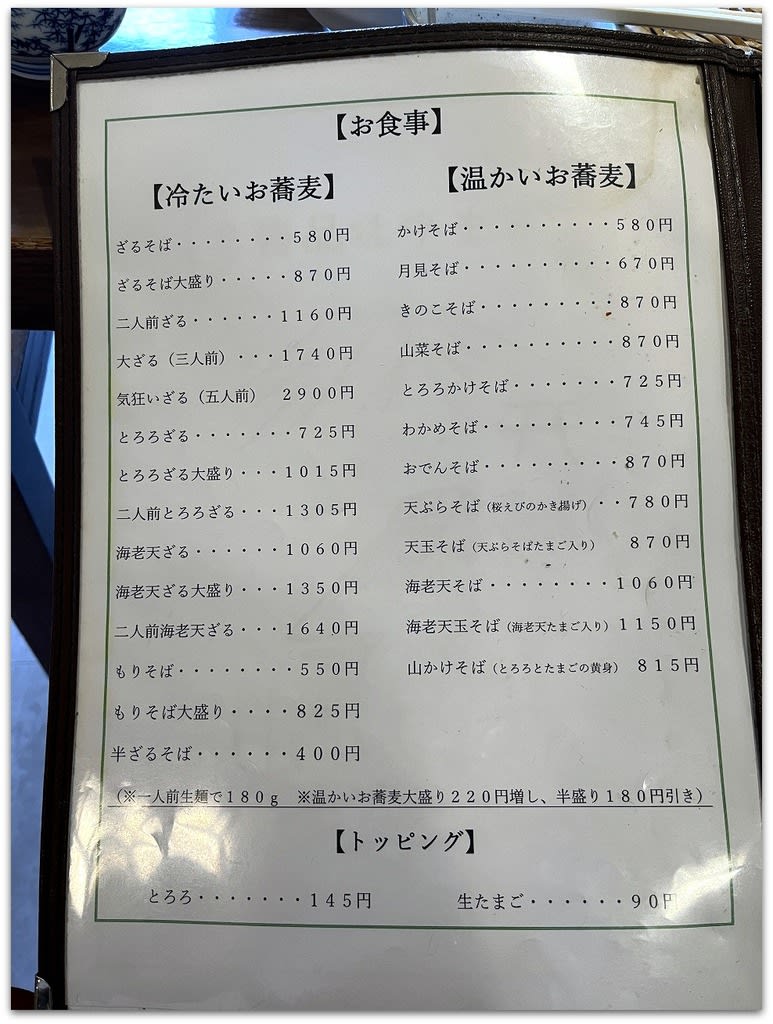 【お食事】
【冷たいお蕎麦】
ざるそば・・・・・・・・５８０円
ざるそば大盛り・・・・・８７０円
二人前ざる・・・・・・１１６０円
大ざる（三人前）・・・１７４０円
気狂いざる（五人前）　２９００円
とろろざる・・・・・・・７２５円
とろろざる大盛り・・・１０１５円
二人前とろろざる・・・１３０５円
海老天ざる・・・・・・１０６０円
海老天ざる大盛り・・・１３５０円
二人前海老天ざる・・・１６４０円
もりそば・・・・・・・・５５０円
もりそば大盛り・・・・８２５円
半ざるそば・・・・・・４００円
【温かいお蕎麦】
かけそば・・・・・・・・・・５８０円
月見そば・・・・・・・・・・６７０円
きのこそば・・・・・・・・・８７０円
山菜そば・・・・・・・・・・８７０円
とろろかけそば・・・・・・・７２５円
わかめそば・・・・・・・・・７４５円
おでんそば・・・・・・・・・８７０円
天ぷらそば（桜えびのかき揚げ）・・７８０円
天玉そば（天ぷらそばたまご入り）　８７０円
海老天そば・・・・・・・・１０６０円
海老天玉そば（海老天たまご入り）１１５０円
山かけそば（とろろとたまごの黄身）　８１５円
（※一人前生麺で１８０ｇ　※温かいお蕎麦大盛り２２０円増し、半盛り１８０円引き）
【トッピング】
とろろ・・・・・・・１４５円
生たまご・・・・・・９０円